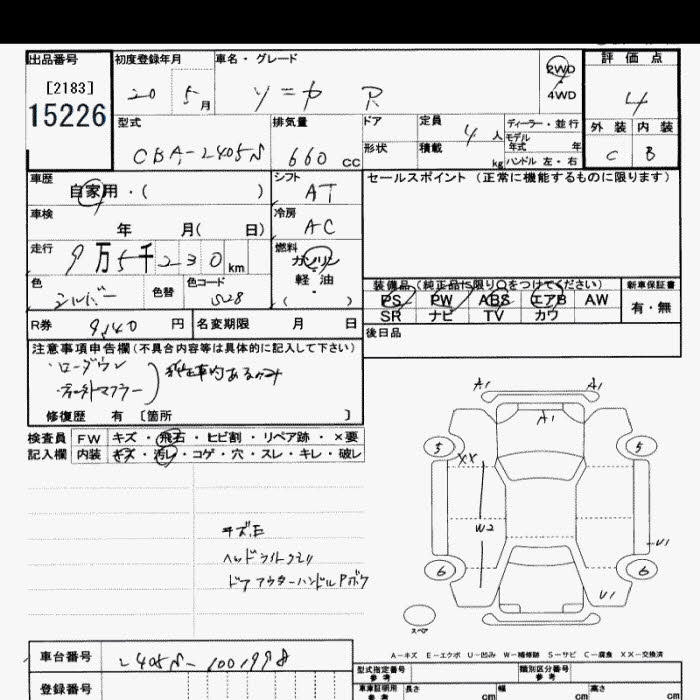 出品番号 初度登録年月 車名・グレード 2WD 評価点
[2183] 20 5月 ソニカ R 4WD 4
15226 型式 排気量 ドア 定員 4人 ディーラー・並行 外装 内装
CBA-L405S 660cc 形状 積載 kg モデル年式 年 ハンドル 左・右 C B
車歴 シフト セールスポイント (正常に機能するものに限ります)
自家用・( ) AT
車検 冷房
年 月( 日) AC
走行 燃料
9万5千230km ガソリン
色 色替 色コード 軽油 装備品(純正品に限り○をつけてください) 新車保証書
シルバー S28 ( ・ ) PS PW ABS エアB AW 有・無
SR ナビ TV カワ
R券 9,140円 名変期限 月 日 後日品
注意事項申告欄(不具合内容等は具体的に記入して下さい)
・ローダウン
修復歴 有 〔箇所 〕
検査員 FW キズ・飛石・ヒビ割・リペア跡・×要
記入欄 内装 キズ・汚レ・コゲ・穴・スレ・キレ・破レ
A1 A1
A1
5 5
XX
W2
U1
6 6
U1
キズE
ヘッドライトクモリ
ドアアウターハンドルPボケ
スペア
A-キズ E-エクボ U-凹み W-補修跡 S-サビ C-腐食 XX-交換済
車台番号 L405S-1001998
型式指定番号 参考 類別区分番号 参考
登録番号 車庫証明用 参考 長さ cm 幅 cm 高さ cm